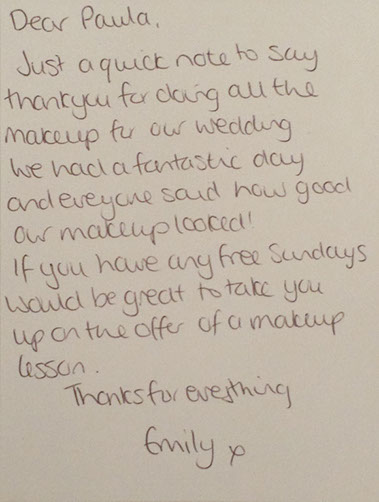 Dear Paula,
Just a quick note to say
thankyou for doing all the
makeup for our wedding
We had a fantastic day
and everyone said how good
our makeup looked!
If you have any free Sundays
would be great to take you
up on the offer of a makeup
lesson.
Thanks for everything
Emily x